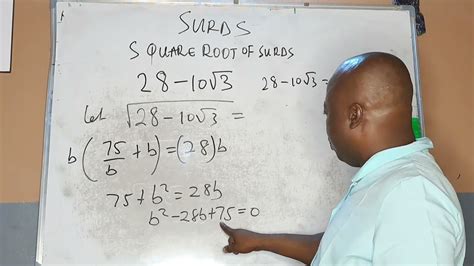 SURDS
SQUARE ROOT OF SURDS
28-10√3 28-10√3=
Let √28-10√3 =
b(75/b+b)=(28)b
75+b²=28b
b²-28b+75=0